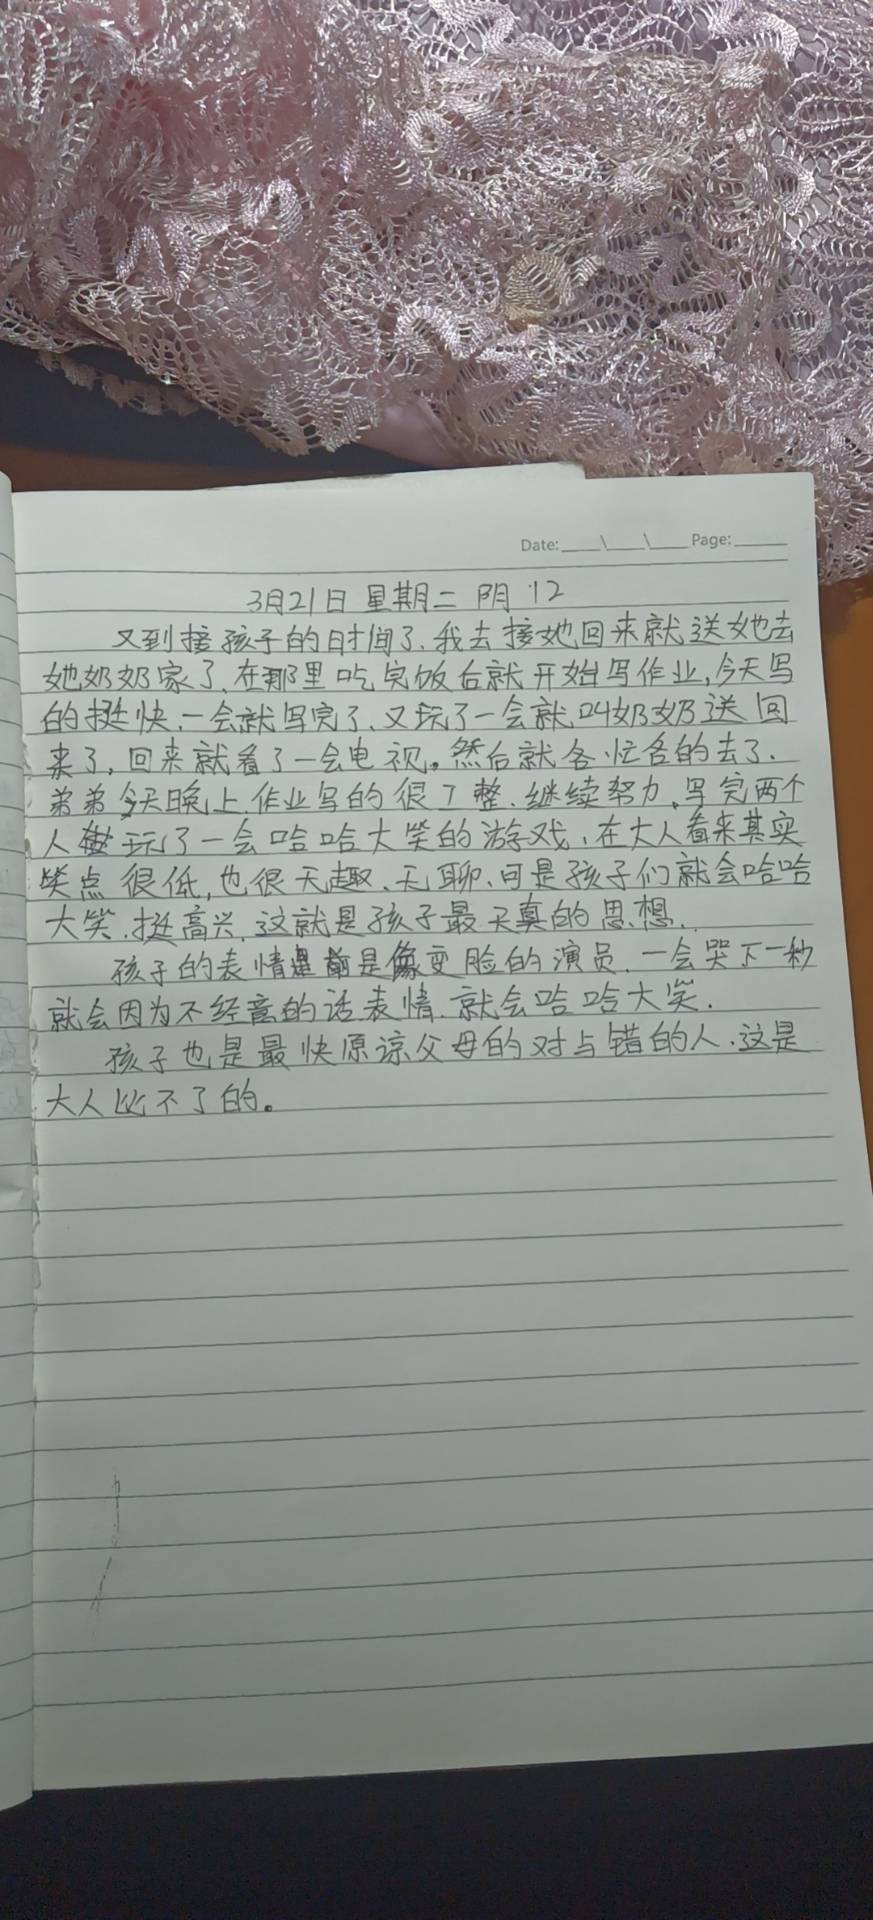 Date:____\____\____Page:______
3月21日 星期二 阴 12
又到接孩子的时间了.我去接她回来就送她去
她奶奶家了.在那里吃完饭后就开始写作业,今天写
的挺快.一会就写完了.又玩了一会就叫奶奶送回
来了,回来就看了一会电视。然后就各忙各的去了.
弟弟今天晚上作业写的很工整.继续努力,写完两个
人玩了一会哈哈大笑的游戏,在大人看来其实
笑点很低,也很无趣.无聊.可是孩子们就会哈哈
大笑.挺高兴.这就是孩子最天真的思想.
孩子的表情是像变脸的演员.一会哭下一秒
就会因为不经意的话表情.就会哈哈大笑.
孩子也是最快原谅父母的对与错的人.这是
大人比不了的。